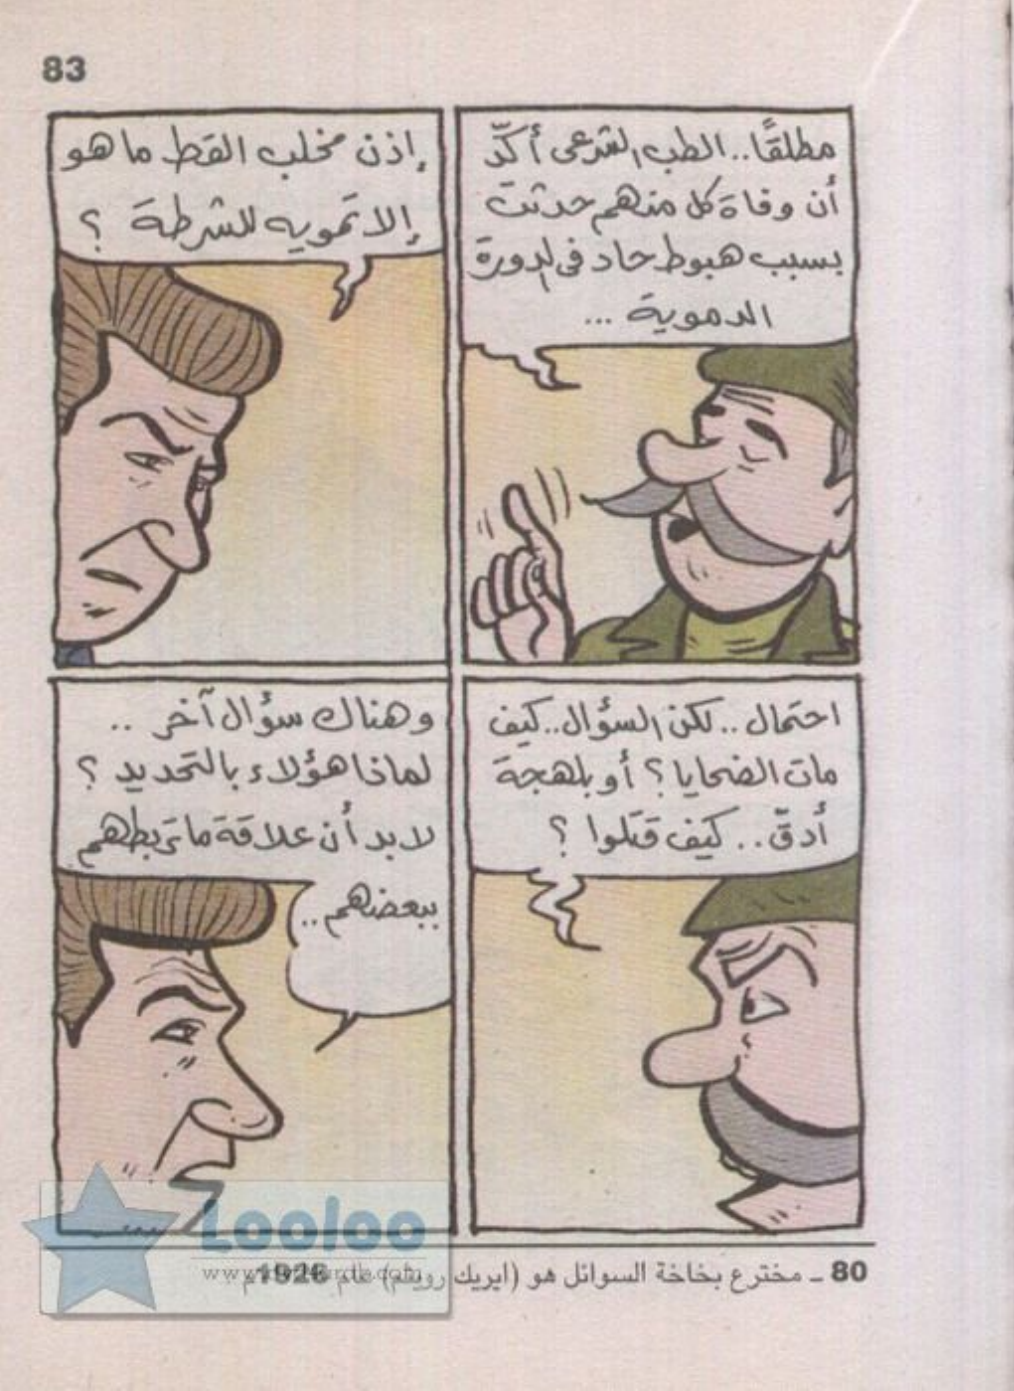 83
مطلقًا.. الطب الشرعى أكّد
أن وفاة كل منهم حدثت
بسبب هبوط حاد فى الدورة
الدموية ...
إذن مخلب القط ما هو
إلا تمويه للشرطة ؟
احتمال .. لكن السؤال .. كيف
مات الضحايا ؟ أو بلهجة
أدقّ .. كيف قتلوا ؟
وهناك سؤال آخر ..
لماذا هؤلاء بالتحديد ؟
لابد أن علاقة ما تربطهم
ببعضهم ..
80 ـ مخترع بخاخة السوائل هو (ايريك روثيم) عام 1926م.
Looloo